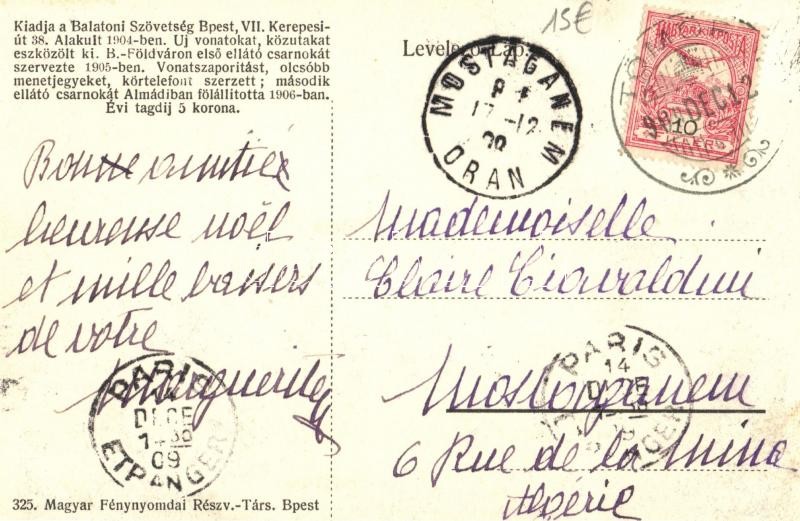 Kiadja a Balatoni Szövetség Bpest, VII. Kerepesi-
út 38. Alakult 1904-ben. Uj vonatokat, közutakat
eszközölt ki. B.-Földváron első ellátó csarnokát
szervezte 1905-ben. Vonatszaporitást, olcsóbb
menetjegyeket, körtelefont szerzett; második
ellátó csarnokát Almádiban fölállitotta 1906-ban.
Évi tagdij 5 korona.
15€
MOSTAGANEM
17-12
09
ORAN
MAGYAR KIR. POSTA
909 DEC 12
10
Bonne amitié
heureuse noël
et mille baisers
de votre
Marguerite
Mademoiselle
Claire Ciavaldini
Mostaganem
6 Rue de la Mina
Algérie
PARIS
DECE
09
ETRANGER
PARIS
14
325. Magyar Fénynyomdai Részv.-Társ. Bpest